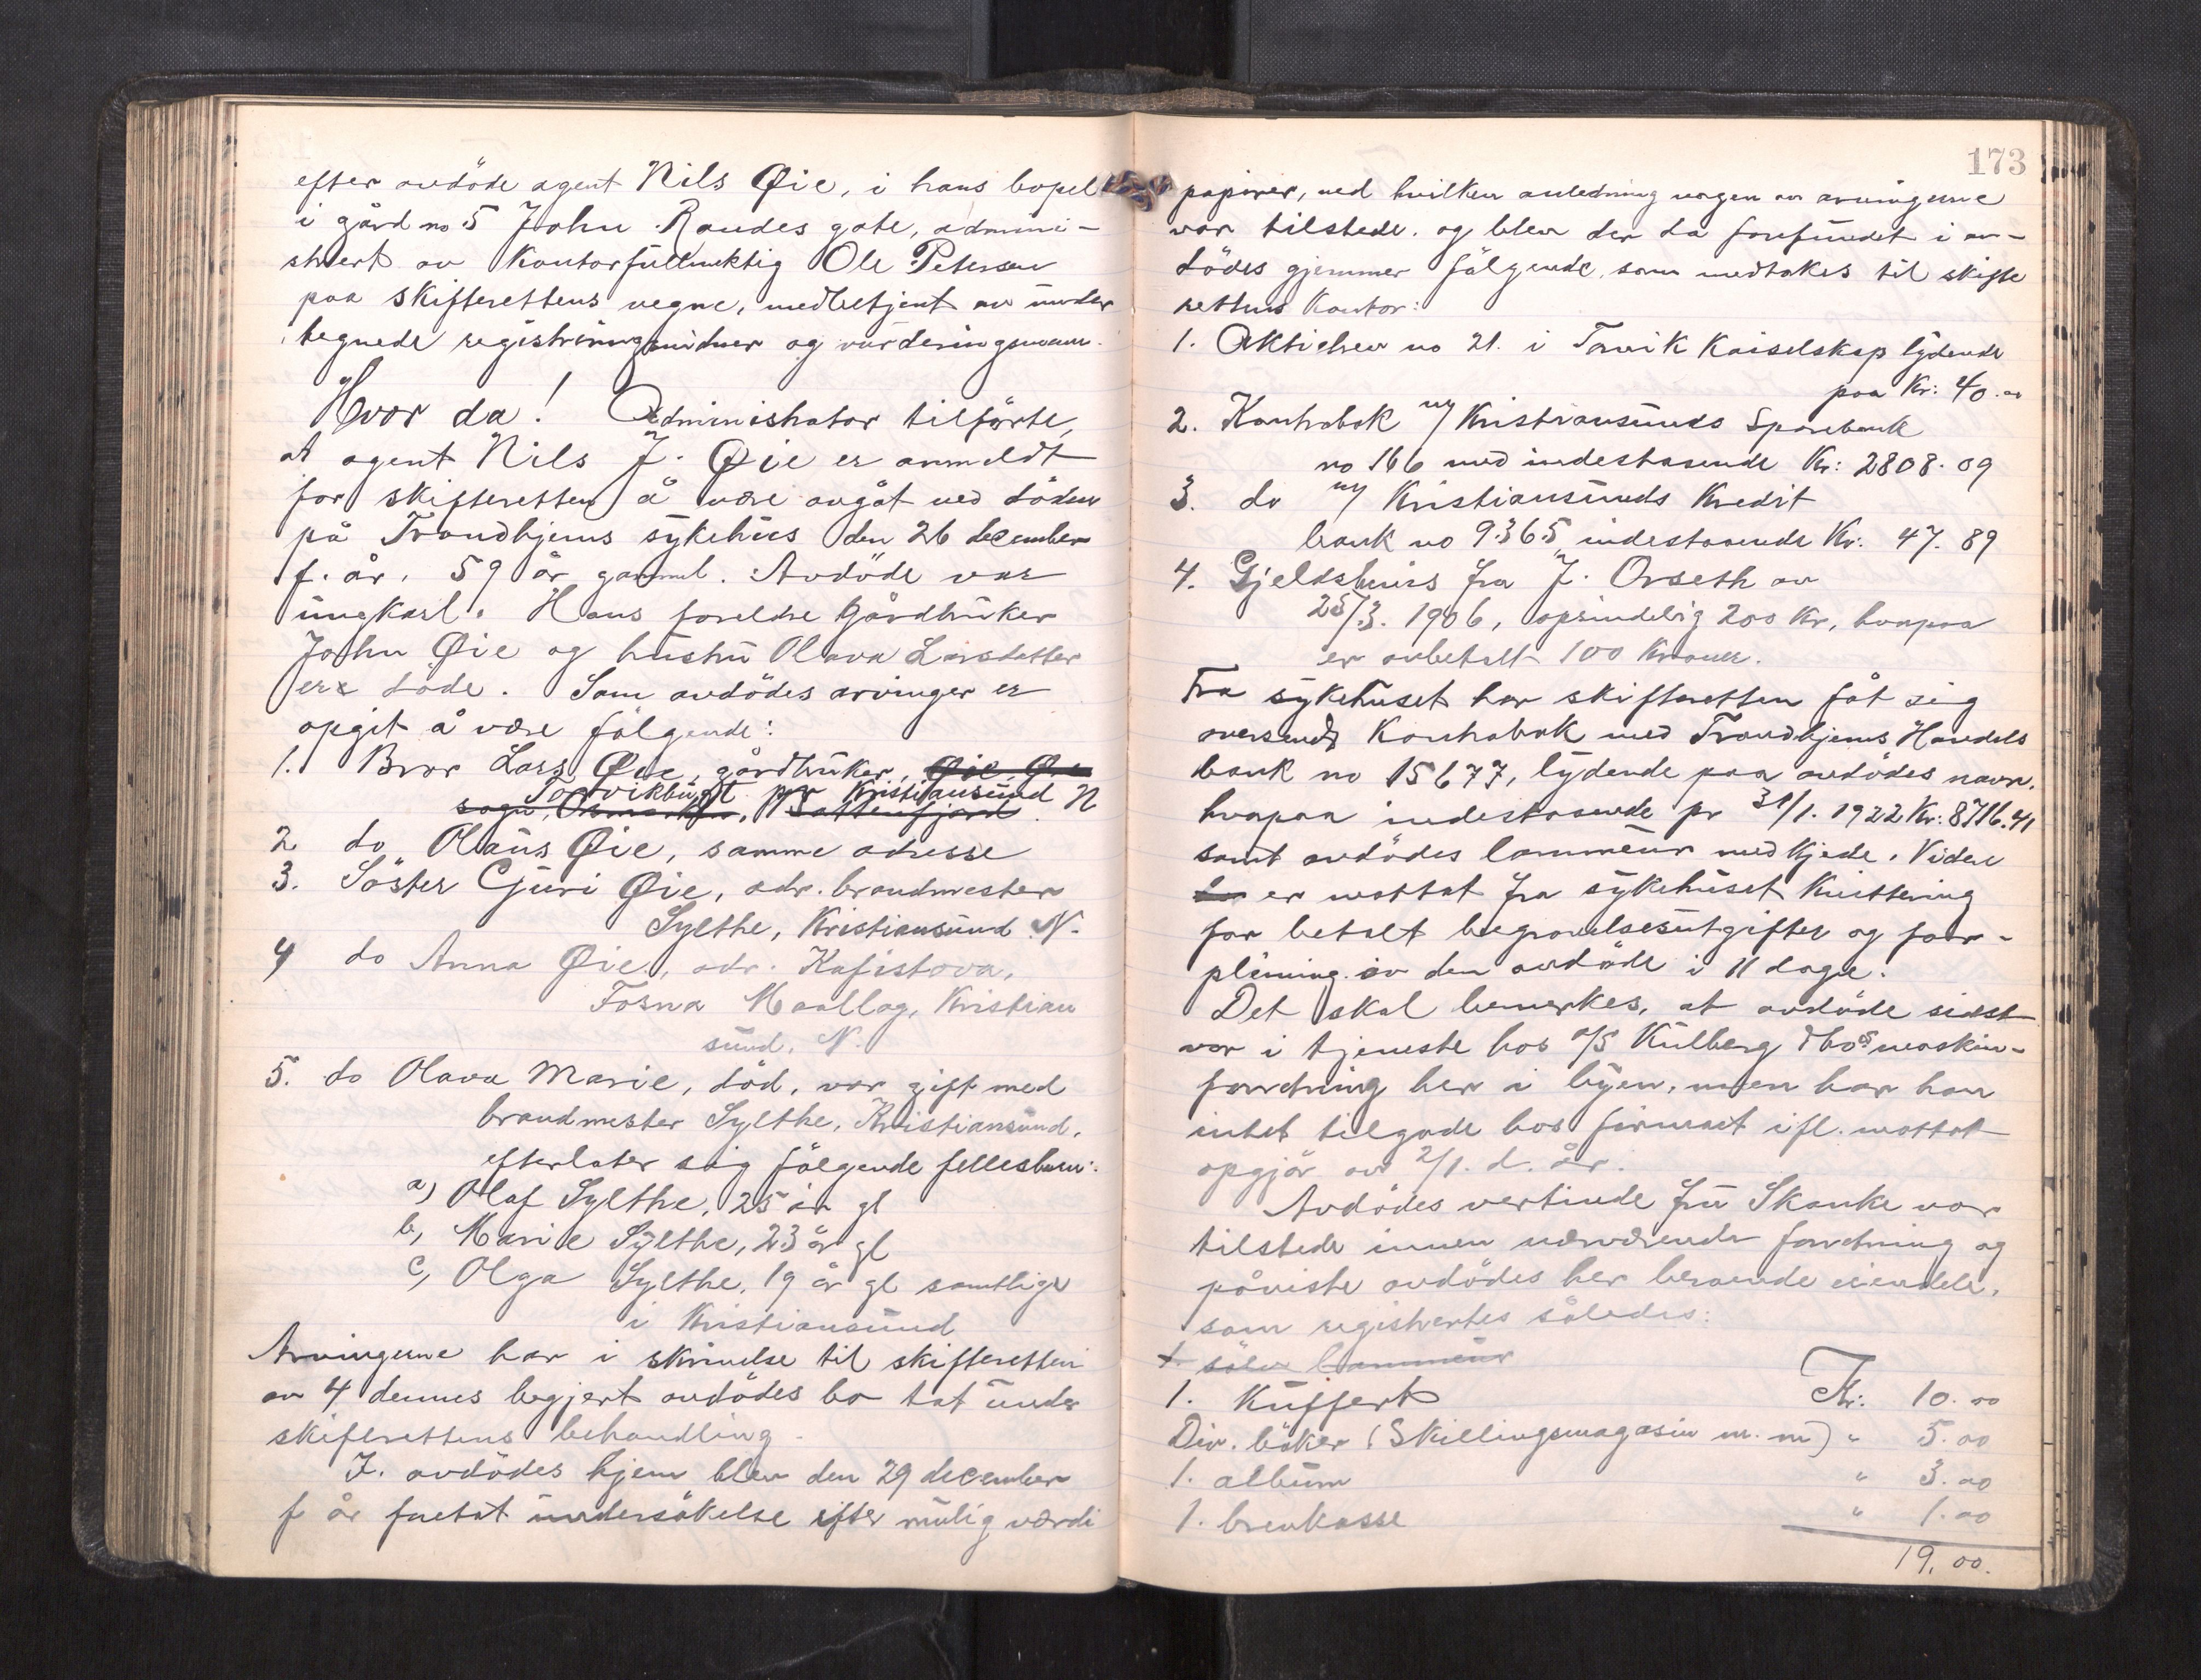 efter avdöde agent Nils Øie, i hans bopel
i gård no 5 John Randes gate, admini-
strert av Kontorfuldmektig Ole Petersen
paa skifterettens vegne, medbetjent av under
tegnede registreringsvidner og vurderingsmænd.
Hvor da! Administrator tilförte,
at agent Nils J. Øie er anmeldt
for skifteretten å være avgåt ved döden
på Trondhjems sykehus den 26 december
f. år, 59 år gammel. Avdöde var
ungkarl. Hans foreldre Gårdbruker
John Øie og hustru Olava Larsdatter
er döde. Som avdödes arvinger er
opgit å være fölgende:
1. Bror Lars Øie, gårdbruker, Øie, Øre
Torvikbugt pr Kristiansund N
sogn, Osmarken, Batnfjord.
2 do Olaus Øie, samme adresse
3. Söster Guri Øie, adr. brandmester
Sylthe, Kristiansund N.
4 do Anna Øie, adr. Kafistova,
Fosna Maallag, Kristian
sund. N.
5. do Olava Marie, död, var gift med
brandmester Sylthe, Kristiansund,
efterlater sig fölgende fellesbarn:
a) Olaf Sylthe, 25 år gl
b, Marie Sylthe, 23 år gl
c, Olga Sylthe, 19 år gl samtlige
i Kristiansund
Arvingerne har i skrivelse til skifteretten
av 4 dennes begjert avdödes bo tat under
skifterettens behandling.
I. avdödes hjem blev den 29 december
f år foretat undersökelse efter mulig værdi
173
papirer, ved hvilken anledning ingen av arvingerne
var tilstede. og blev der da forefundet i av-
dödes gjemmer fölgende, som medtakes til skifte
rettens Kontor:
1. Aktiebrev no 21. i Torvik Kaiselskap lydende
paa Kr: 40.00
2. Kontrabok m/ Kristiansunds Sparebank
no 166 med indestaaende Kr: 2808.09
3. do m/ Kristiansunds Kredit
bank no 9365 indestaaende Kr. 47.89
4. Gjeldsbevis fra J. Orseth av
25/3. 1906, oprindelig 200 Kr, hvapaa
er avbetalt 100 Kroner.
Fra sykehuset har skifteretten fåt sig
oversendt Kontrabok med Trondhjems Handels
bank no 15677, lydende paa avdödes navn.
hvapaa indestaaende pr 31/1. 1922 Kr: 8716.41
samt avdödes lommeur med kjede. Videre
er mottat fra sykehuset Kvittering
for betalt begravelsesutgifter og for-
pleining av den avdöde i 11 dage.
Det skal bemerkes, at avdöde sidst
var i tjeneste hos A/S Kulberg & Cos maskin-
forretning her i byen, men har han
intet tilgode hos firmaet ifl. mottat
opgjör av 2/1. d. år.
Avdödes vertinde fru Skanke var
tilstede innen nærværende forretning og
påviste avdödes her beroende eiendele,
som registrertes således:
1. sölv lommeur
1. Kuffert Kr: 10.00
Div. böker (Skillingsmagasin m. m) " 5.00
1. album " 3.00
1. brevkasse " 1.00
19,00.